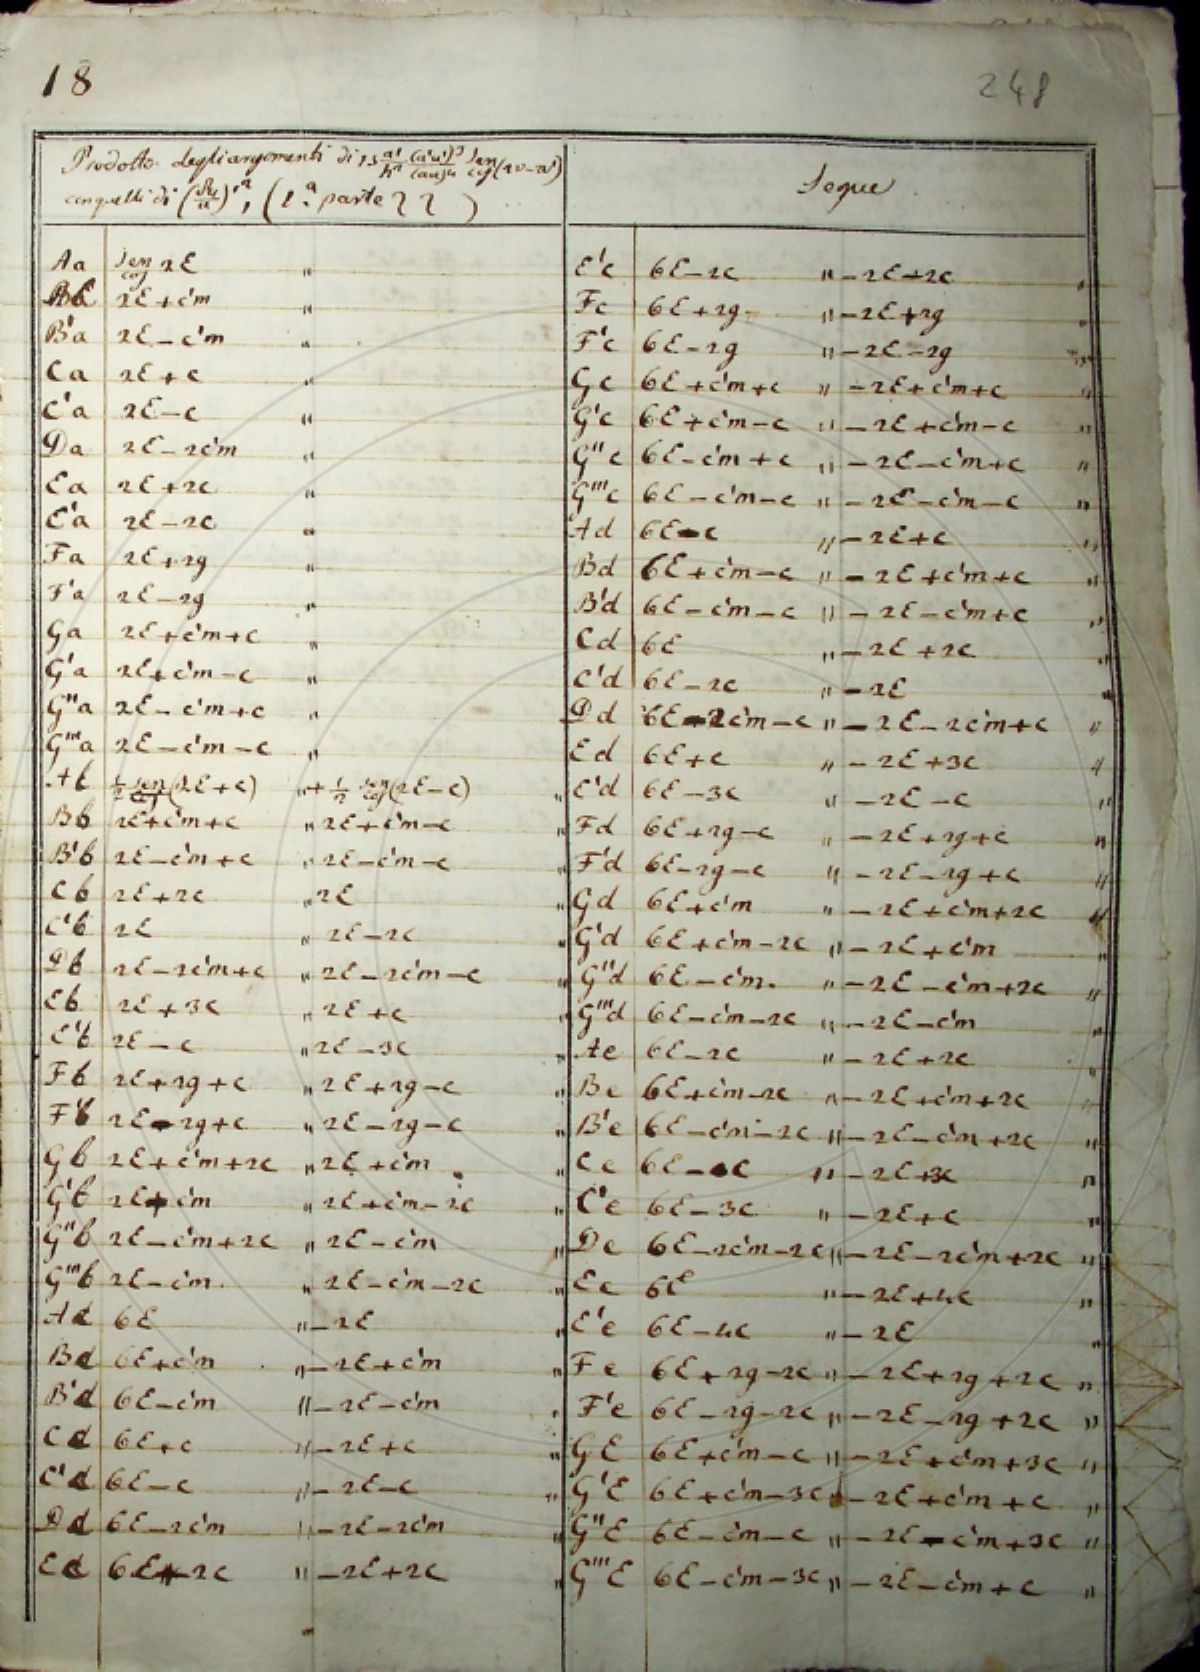 18
248
Prodotto degli argomenti di 15 a'/h² (a'u')³/(au)4 sen/cos (2v-2v')
con quelli di (δu/u)'², (1.a parte )
Segue
Aa sen/cos 2E "
Bb 2E+c'm "
B'a 2E-c'm "
Ca 2E+c "
C'a 2E-c "
Da 2E-2c'm "
Ea 2E+2c "
E'a 2E-2c "
Fa 2E+2g "
F'a 2E-2g "
Ga 2E+c'm+c "
G'a 2E+c'm-c "
G"a 2E-c'm+c "
G'''a 2E-c'm-c "
Ab 1/2 sen/cos (2E+c) "+ 1/2 sen/cos (2E-c) "
Bb 2E+c'm+c " 2E+c'm-c "
B'b 2E-c'm+c " 2E-c'm-c "
Cb 2E+2c " 2E "
C'b 2E " 2E-2c "
Db 2E-2c'm+c " 2E-2c'm-c "
Eb 2E+3c " 2E+c "
E'b 2E-c " 2E-3c "
Fb 2E+2g+c " 2E+2g-c "
F'b 2E-2g+c " 2E-2g-c "
Gb 2E+c'm+2c " 2E+c'm "
G'b 2E+c'm " 2E+c'm-2c "
G"b 2E-c'm+2c " 2E-c'm "
G'''b 2E-c'm " 2E-c'm-2c "
Ac 6E "-2E "
Bc 6E+c'm "-2E+c'm "
B'c 6E-c'm "-2E-c'm "
Cc 6E+c "-2E+c "
C'c 6E-c "-2E-c "
Dc 6E-2c'm "-2E-2c'm "
Ec 6E+2c "-2E+2c "
E'c 6E-2c "-2E+2c "
Fc 6E+2g "-2E+2g "
F'c 6E-2g "-2E-2g "
Gc 6E+c'm+c "-2E+c'm+c "
G'c 6E+c'm-c "-2E+c'm-c "
G"c 6E-c'm+c "-2E-c'm+c "
G'''c 6E-c'm-c "-2E-c'm-c "
Ad 6E-c "-2E+c "
Bd 6E+c'm-c "-2E+c'm+c "
B'd 6E-c'm-c "-2E-c'm+c "
Cd 6E "-2E+2c "
C'd 6E-2c "-2E "
Dd 6E-2c'm-c "-2E-2c'm+c "
Ed 6E+c "-2E+3c "
E'd 6E-3c "-2E-c "
Fd 6E+2g-c "-2E+2g+c "
F'd 6E-2g-c "-2E-2g+c "
Gd 6E+c'm "-2E+c'm+2c "
G'd 6E+c'm-2c "-2E+c'm "
G"d 6E-c'm "-2E-c'm+2c "
G'''d 6E-c'm-2c "-2E-c'm "
Ae 6E-2c "-2E+2c "
Be 6E+c'm-2c "-2E+c'm+2c "
B'e 6E-c'm-2c "-2E-c'm+2c "
Ce 6E-c "-2E+3c "
C'e 6E-3c "-2E+c "
De 6E-2c'm-2c "-2E-2c'm+2c "
Ee 6E "-2E+4c "
E'e 6E-4c "-2E "
Fe 6E+2g-2c "-2E+2g+2c "
F'e 6E-2g-2c "-2E-2g+2c "
GE 6E+c'm-c "-2E+c'm+3c "
G'E 6E+c'm-3c "-2E+c'm+c "
G"E 6E-c'm-c "-2E-c'm+3c "
G'''E 6E-c'm-3c "-2E-c'm+c "